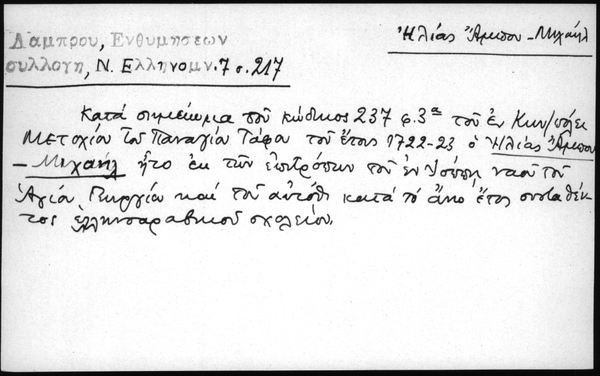 Λάμπρου, Ενθυμήσεων
συλλογη, Ν. Ελληνομν. 7 σ. 217
Ἠλίας Ἄμεπου - Μιχαήλ
Κατά σημείωμα τοῦ κώδικος 237 φ. 3α τοῦ ἐν Κων/πόλει
Μετοχίου τοῦ Παναγίου Τάφου τοῦ ἔτους 1722-23 ὁ Ἠλίας Ἄμεπου
- Μιχαήλ ἦτο ἐκ τῶν ἐπιτρόπων τοῦ ἐν Ἰόππῃ ναοῦ τοῦ
Ἁγίου Γεωργίου καί τοῦ αὐτόθι κατά τό ἄνω ἔτος συσταθέν-
τος ἑλληνοαραβικοῦ σχολείου.